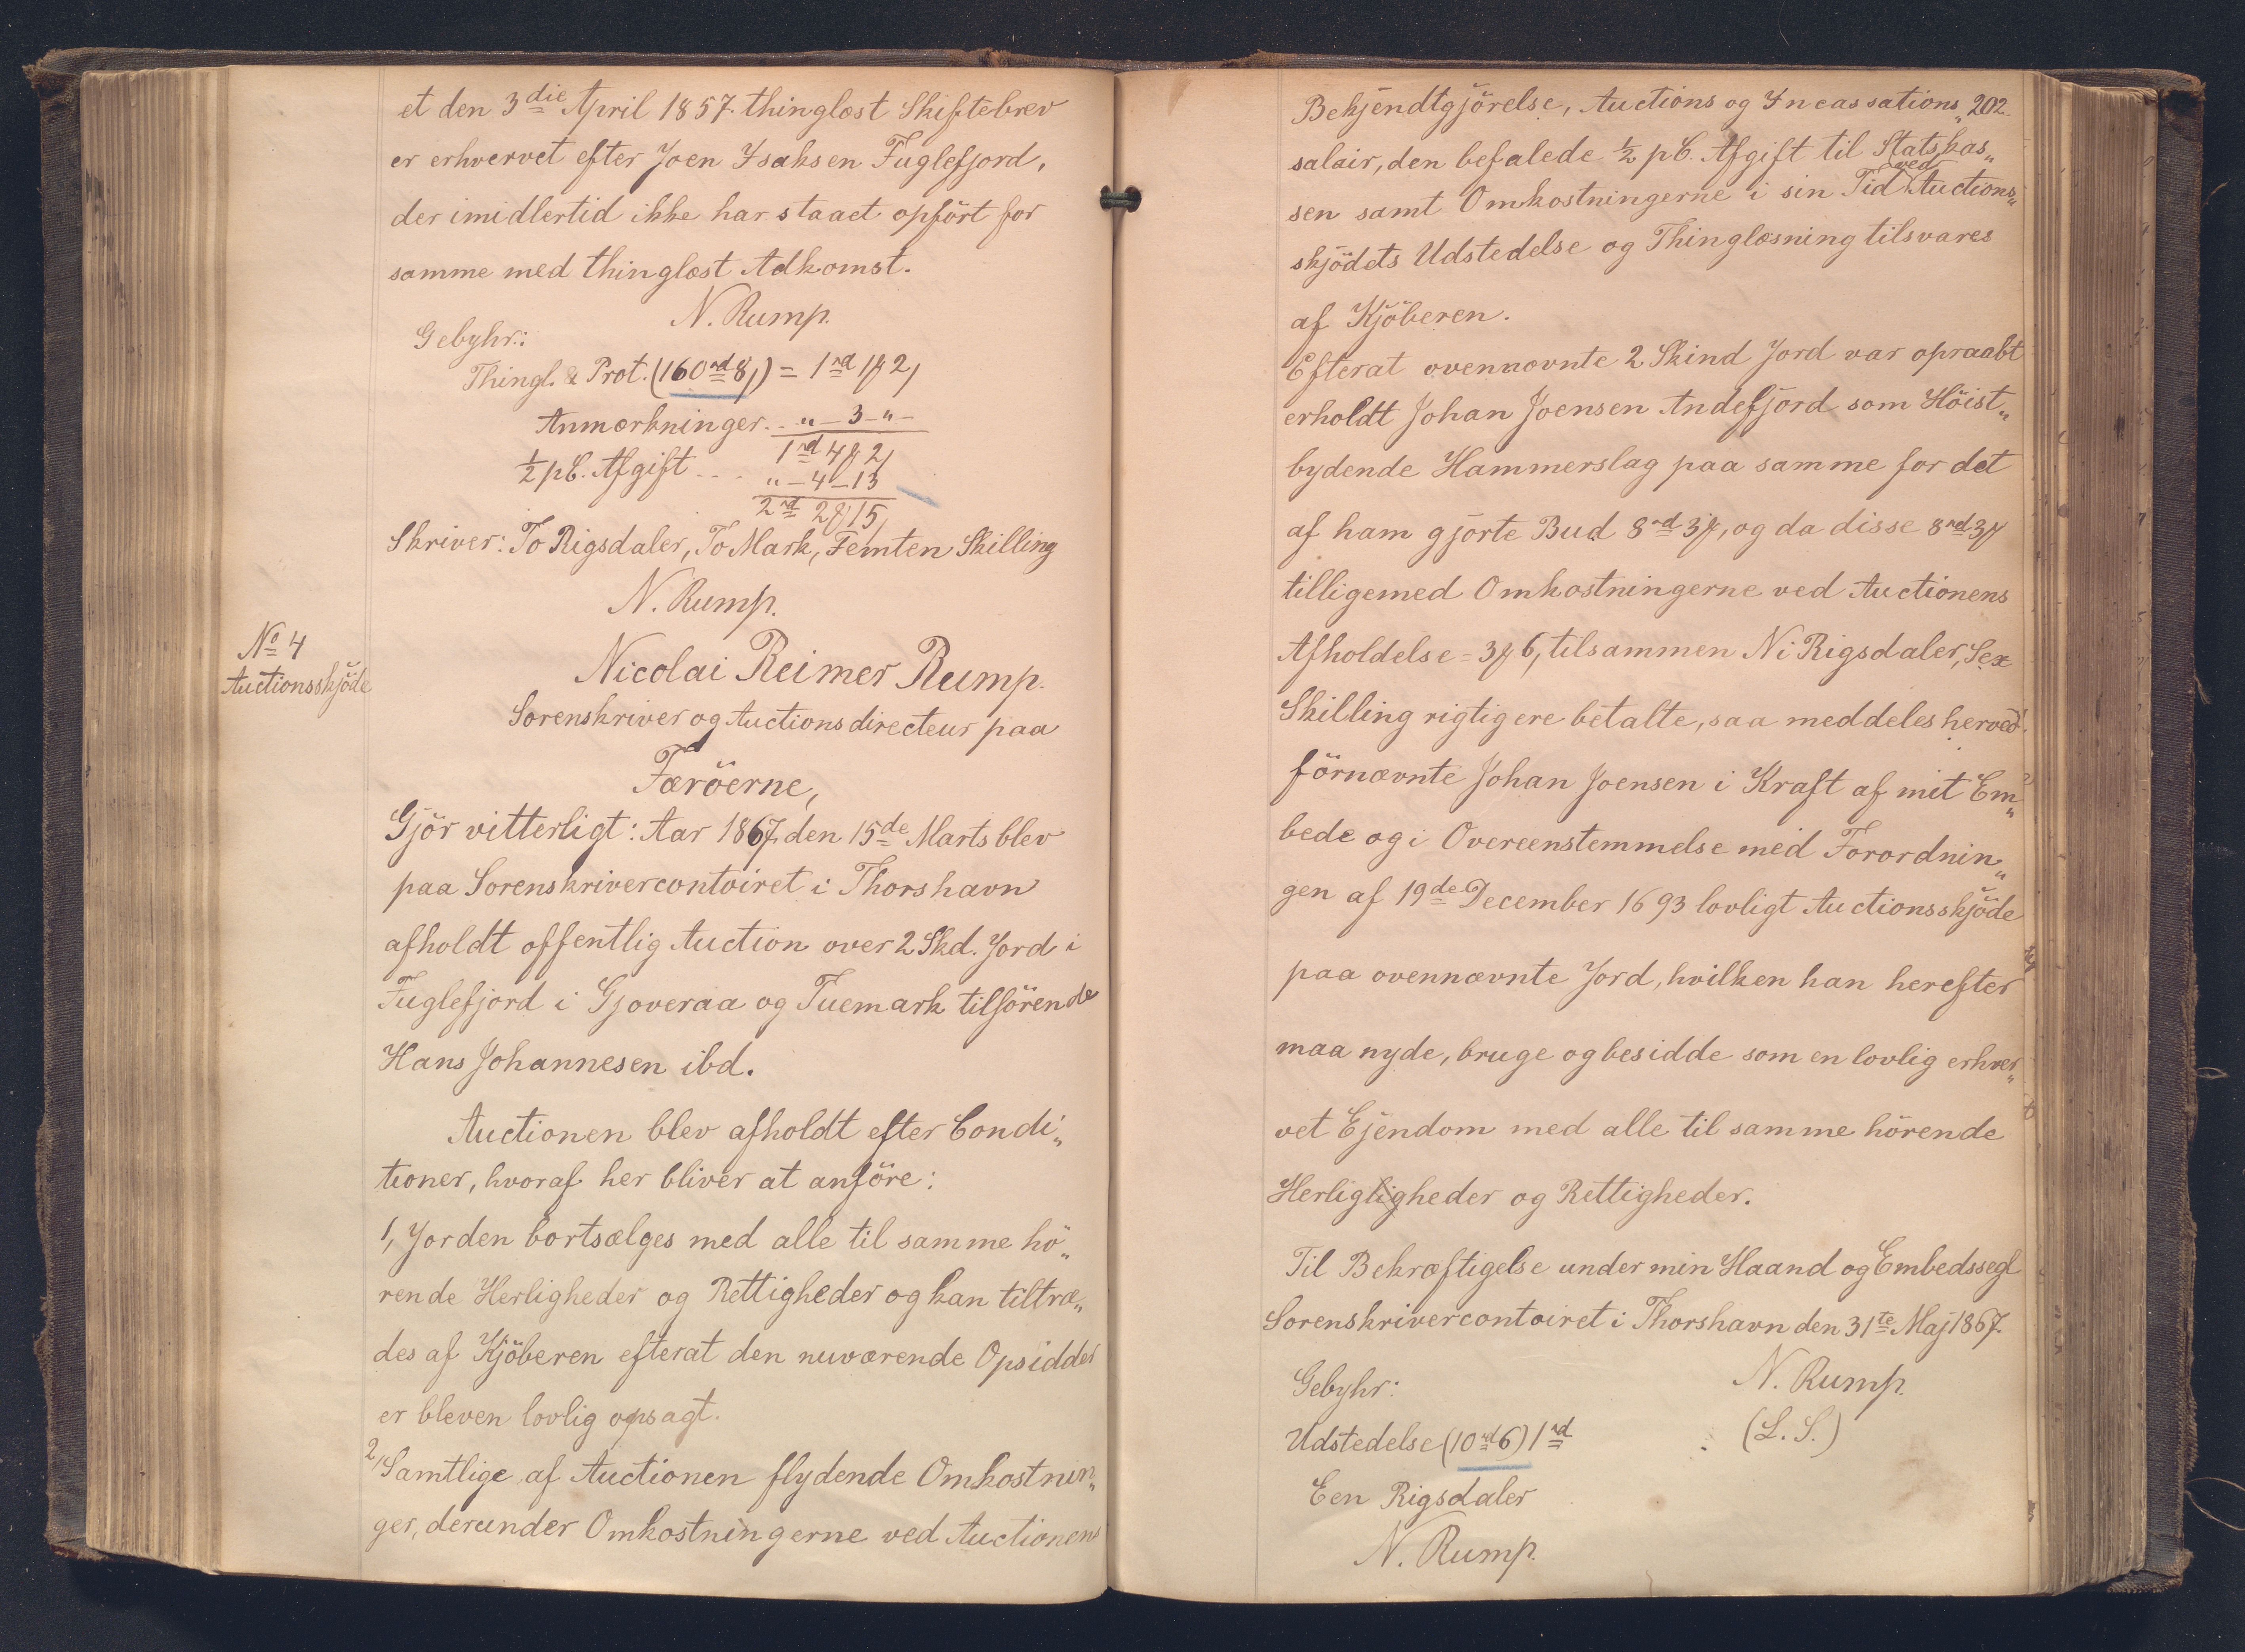 et den 3die April 1857 thinglæst Skiftebrev
er erhvervet efter Joen Isaksen Fuglefjord,
der imidlertid ikke har staaet opført for
samme med thinglæst Adkomst.
N. Rump.
Gebyhr:
Thingl. & Prot. (160rd 8,) = 1rd 1ꝑ 2,
Anmærkninger .. " - 3 - " -
1rd 4ꝑ 2,
½ pC. Afgift - - - " - 4 - 13
2rd 2ꝑ 15,
Skriver: To Rigsdaler, To Mark, Femten Skilling
N. Rump.
No 4
Auctionsskjöde
Nicolai Reimer Rump.
Sorenskriver og Auctionsdirecteur paa
Færöerne,
Gjör vitterligt: Aar 1867 den 15de Marts blev
paa Sorenskrivercontoiret i Thorshavn
afholdt offentlig Auction over 2 Skd. Jord i
Fuglefjord i Gjoveraa og Tuemark tilhörende
Hans Johannesen ibd.
Auctionen blev afholdt efter Condi„
tioner, hvoraf her bliver at anföre:
1, Jorden bortsælges med alle til samme hö„
rende Herligheder og Rettigheder og kan tiltræ„
des af Kjöberen efterat den nuværende Opsidder
er bleven lovlig opsagt.
2, Samtlige af Auctionen flydende Omkostnin„
ger, derunder Omkostningerne ved Auctionens
202.
Bekjendtgjörelse, Auctions og Incassations„
salair, den befalede ½ pC. Afgift til Statskas„
sen samt Omkostningerne i sin Tid ved Auctions„
skjödets Udstedelse og Thinglæsning tilsvares
af Kjöberen.
Efterat ovennævnte 2 Skind Jord var opraabt
erholdt Johan Joensen Andefjord som Höist„
bydende Hammerslag paa samme for det
af ham gjorte Bud 8rd 3ꝑ, og da disse 8rd 3ꝑ
tilligemed Omkostningerne ved Auctionens
Afholdelse = 3ꝑ 6, tilsammen Ni Rigsdaler, Sex
Skilling rigtig ere betalte, saa meddeles herved
förnævnte Johan Joensen i Kraft af mit Em„
bede og i Overeenstemmelse med Forordnin„
gen af 19de December 1693 lovligt Auctionsskjöde
paa ovennævnte Jord, hvilken han herefter
maa nyde, bruge og besidde som en lovlig erhver„
vet Ejendom med alle til samme hörende
Herligligheder og Rettigheder.
Til Bekræftigelse under min Haand og Embedssegl
Sorenskrivercontoiret i Thorshavn den 31te Maj 1867.
N. Rump.
(L. S.)
Gebyhr:
Udstedelse (10rd 6) 1rd
Een Rigsdaler
N. Rump.